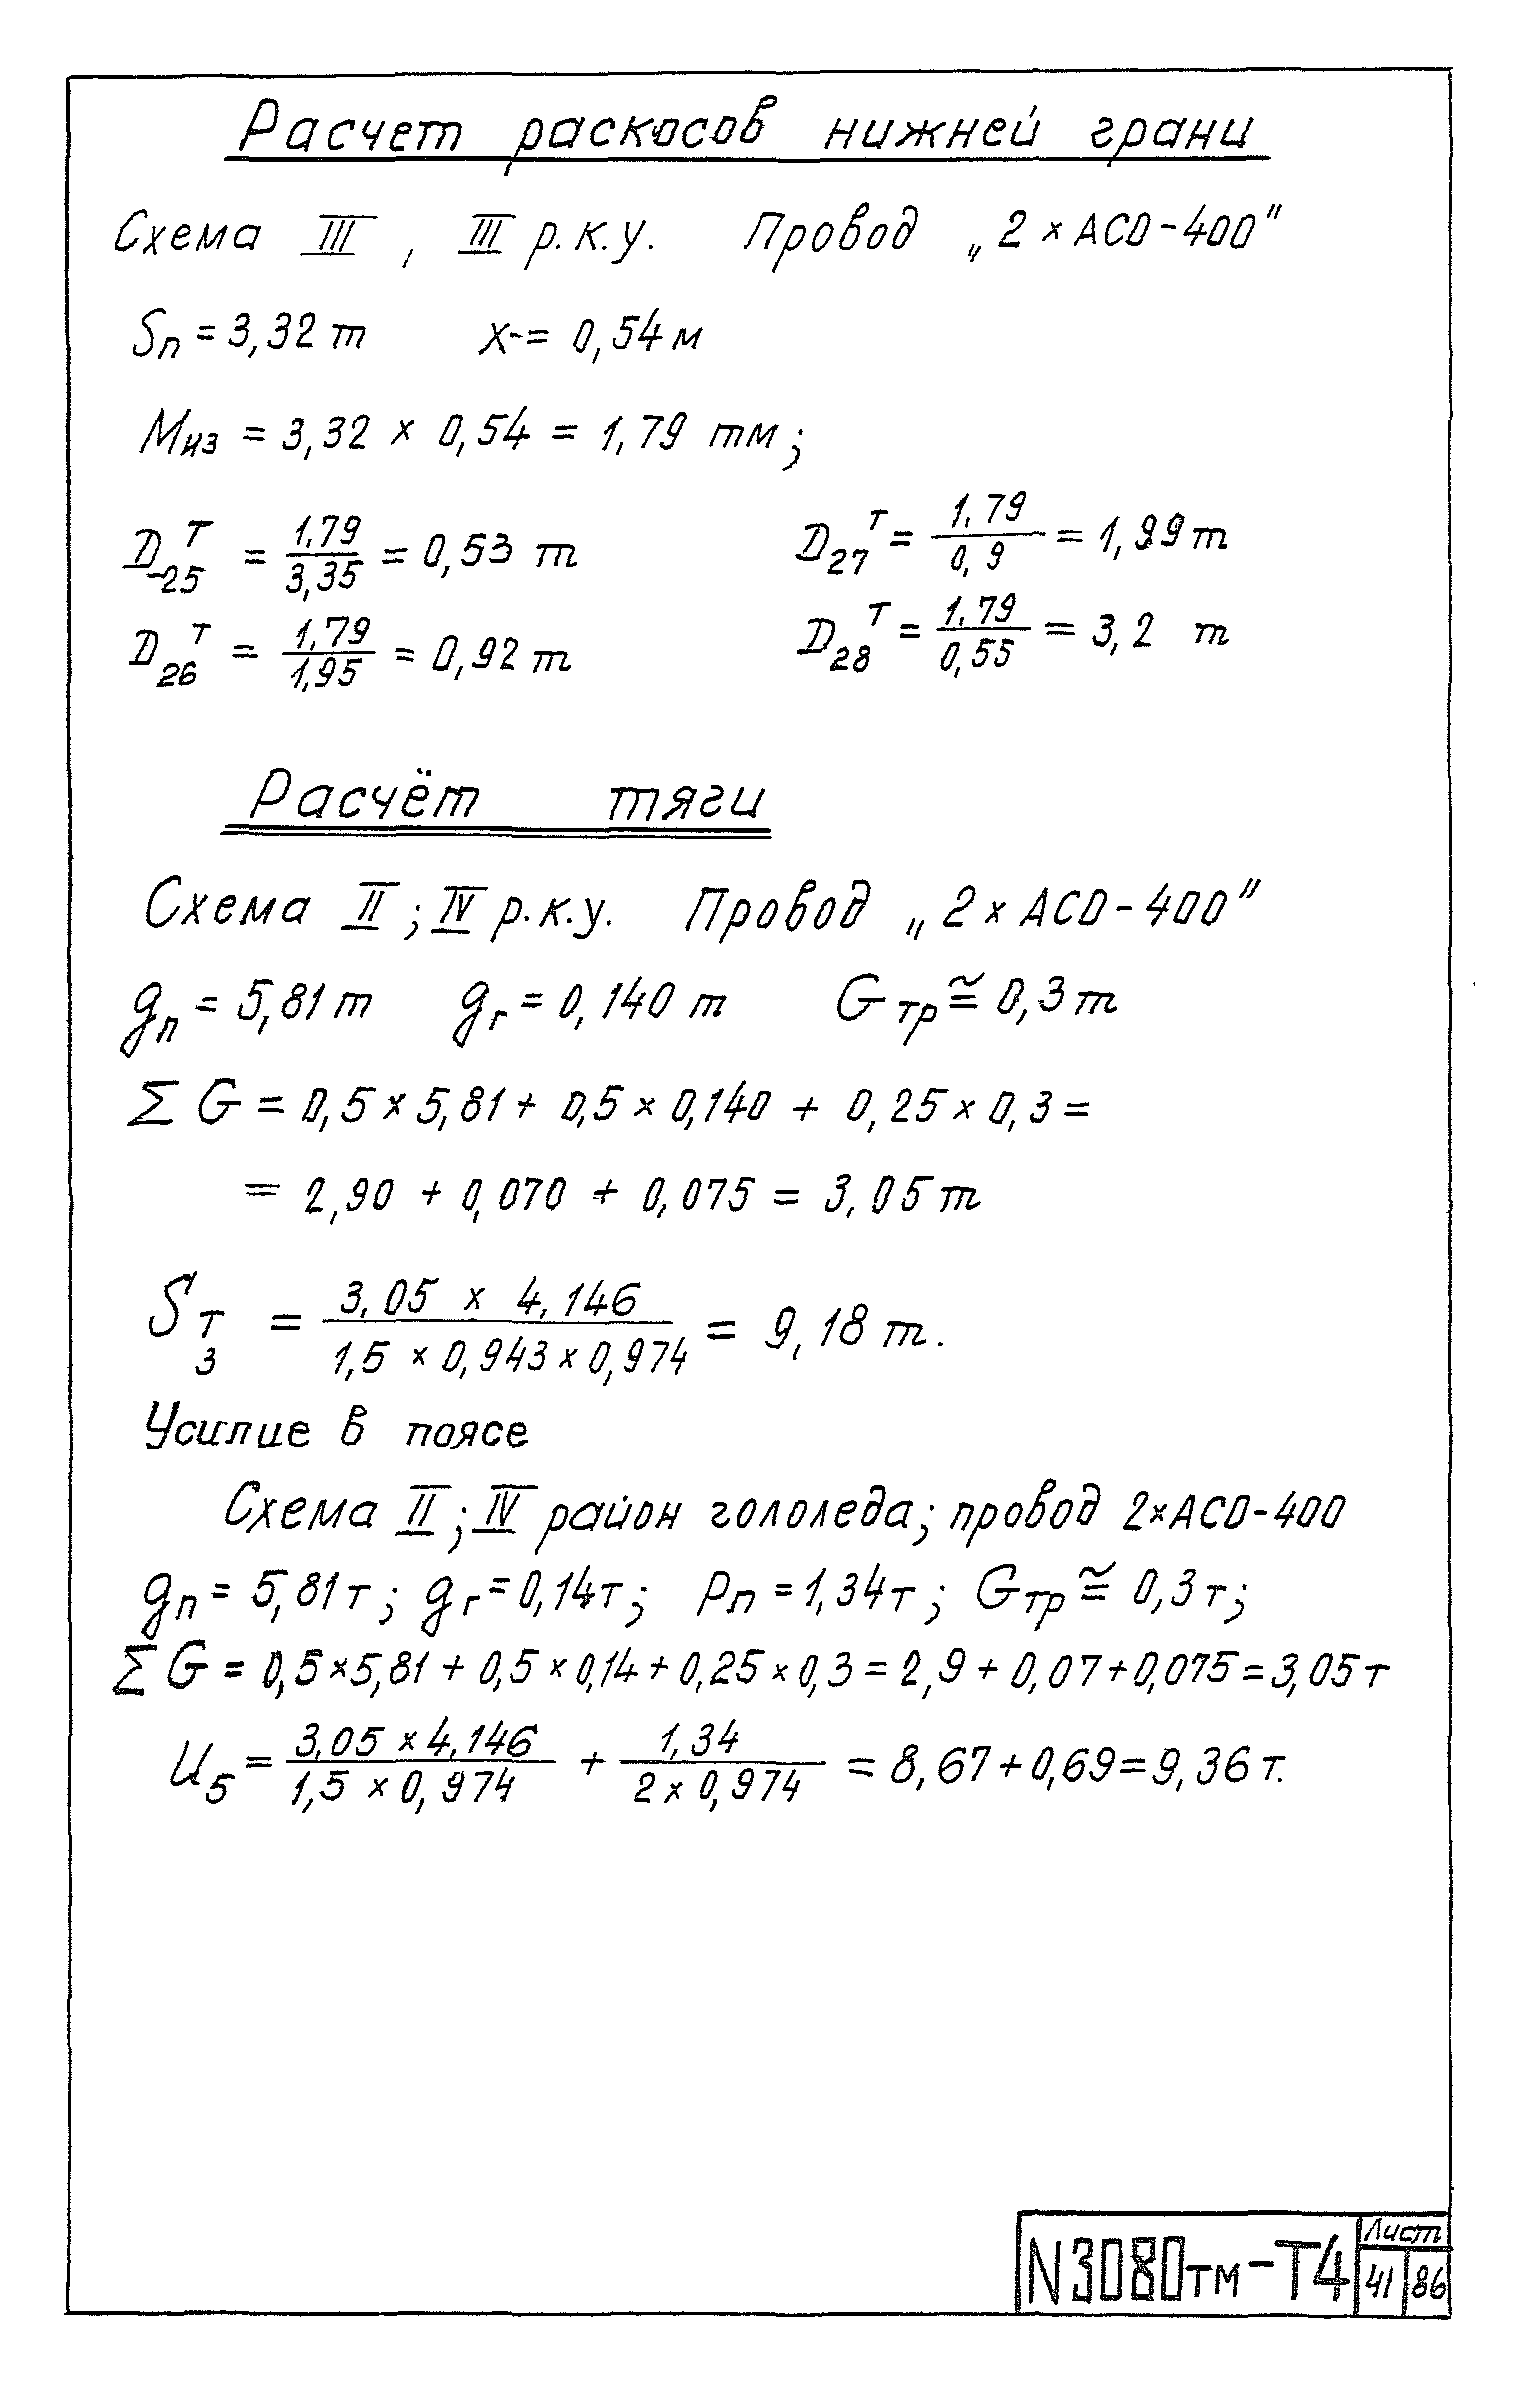 Расчет раскосов нижней грани
Схема III, III р.к.у. Провод „2 × АСО-400"
Sп = 3,32 т x = 0,54 м
Mиз = 3,32 × 0,54 = 1,79 тм;
D25^T = 1,79/3,35 = 0,53 т D27^T = 1,79/0,9 = 1,99 т
D26^T = 1,79/1,95 = 0,92 т D28^T = 1,79/0,55 = 3,2 т
Расчёт тяги
Схема II; IV р.к.у. Провод „2 × АСО-400"
gп = 5,81 т gг = 0,140 т Gтр ≅ 0,3 т
Σ G = 0,5 × 5,81 + 0,5 × 0,140 + 0,25 × 0,3 =
= 2,90 + 0,070 + 0,075 = 3,05 т
Sт3 = 3,05 × 4,146 / 1,5 × 0,943 × 0,974 = 9,18 т.
Усилие в поясе
Схема II; IV район гололеда; провод 2×АСО-400
gп = 5,81 т; gг = 0,14 т; Pп = 1,34 т; Gтр ≅ 0,3 т;
Σ G = 0,5×5,81 + 0,5×0,14 + 0,25×0,3 = 2,9 + 0,07 + 0,075 = 3,05 т
U5 = 3,05 × 4,146 / 1,5 × 0,974 + 1,34 / 2 × 0,974 = 8,67 + 0,69 = 9,36 т.
N3080тм-Т4 Лист
41 86